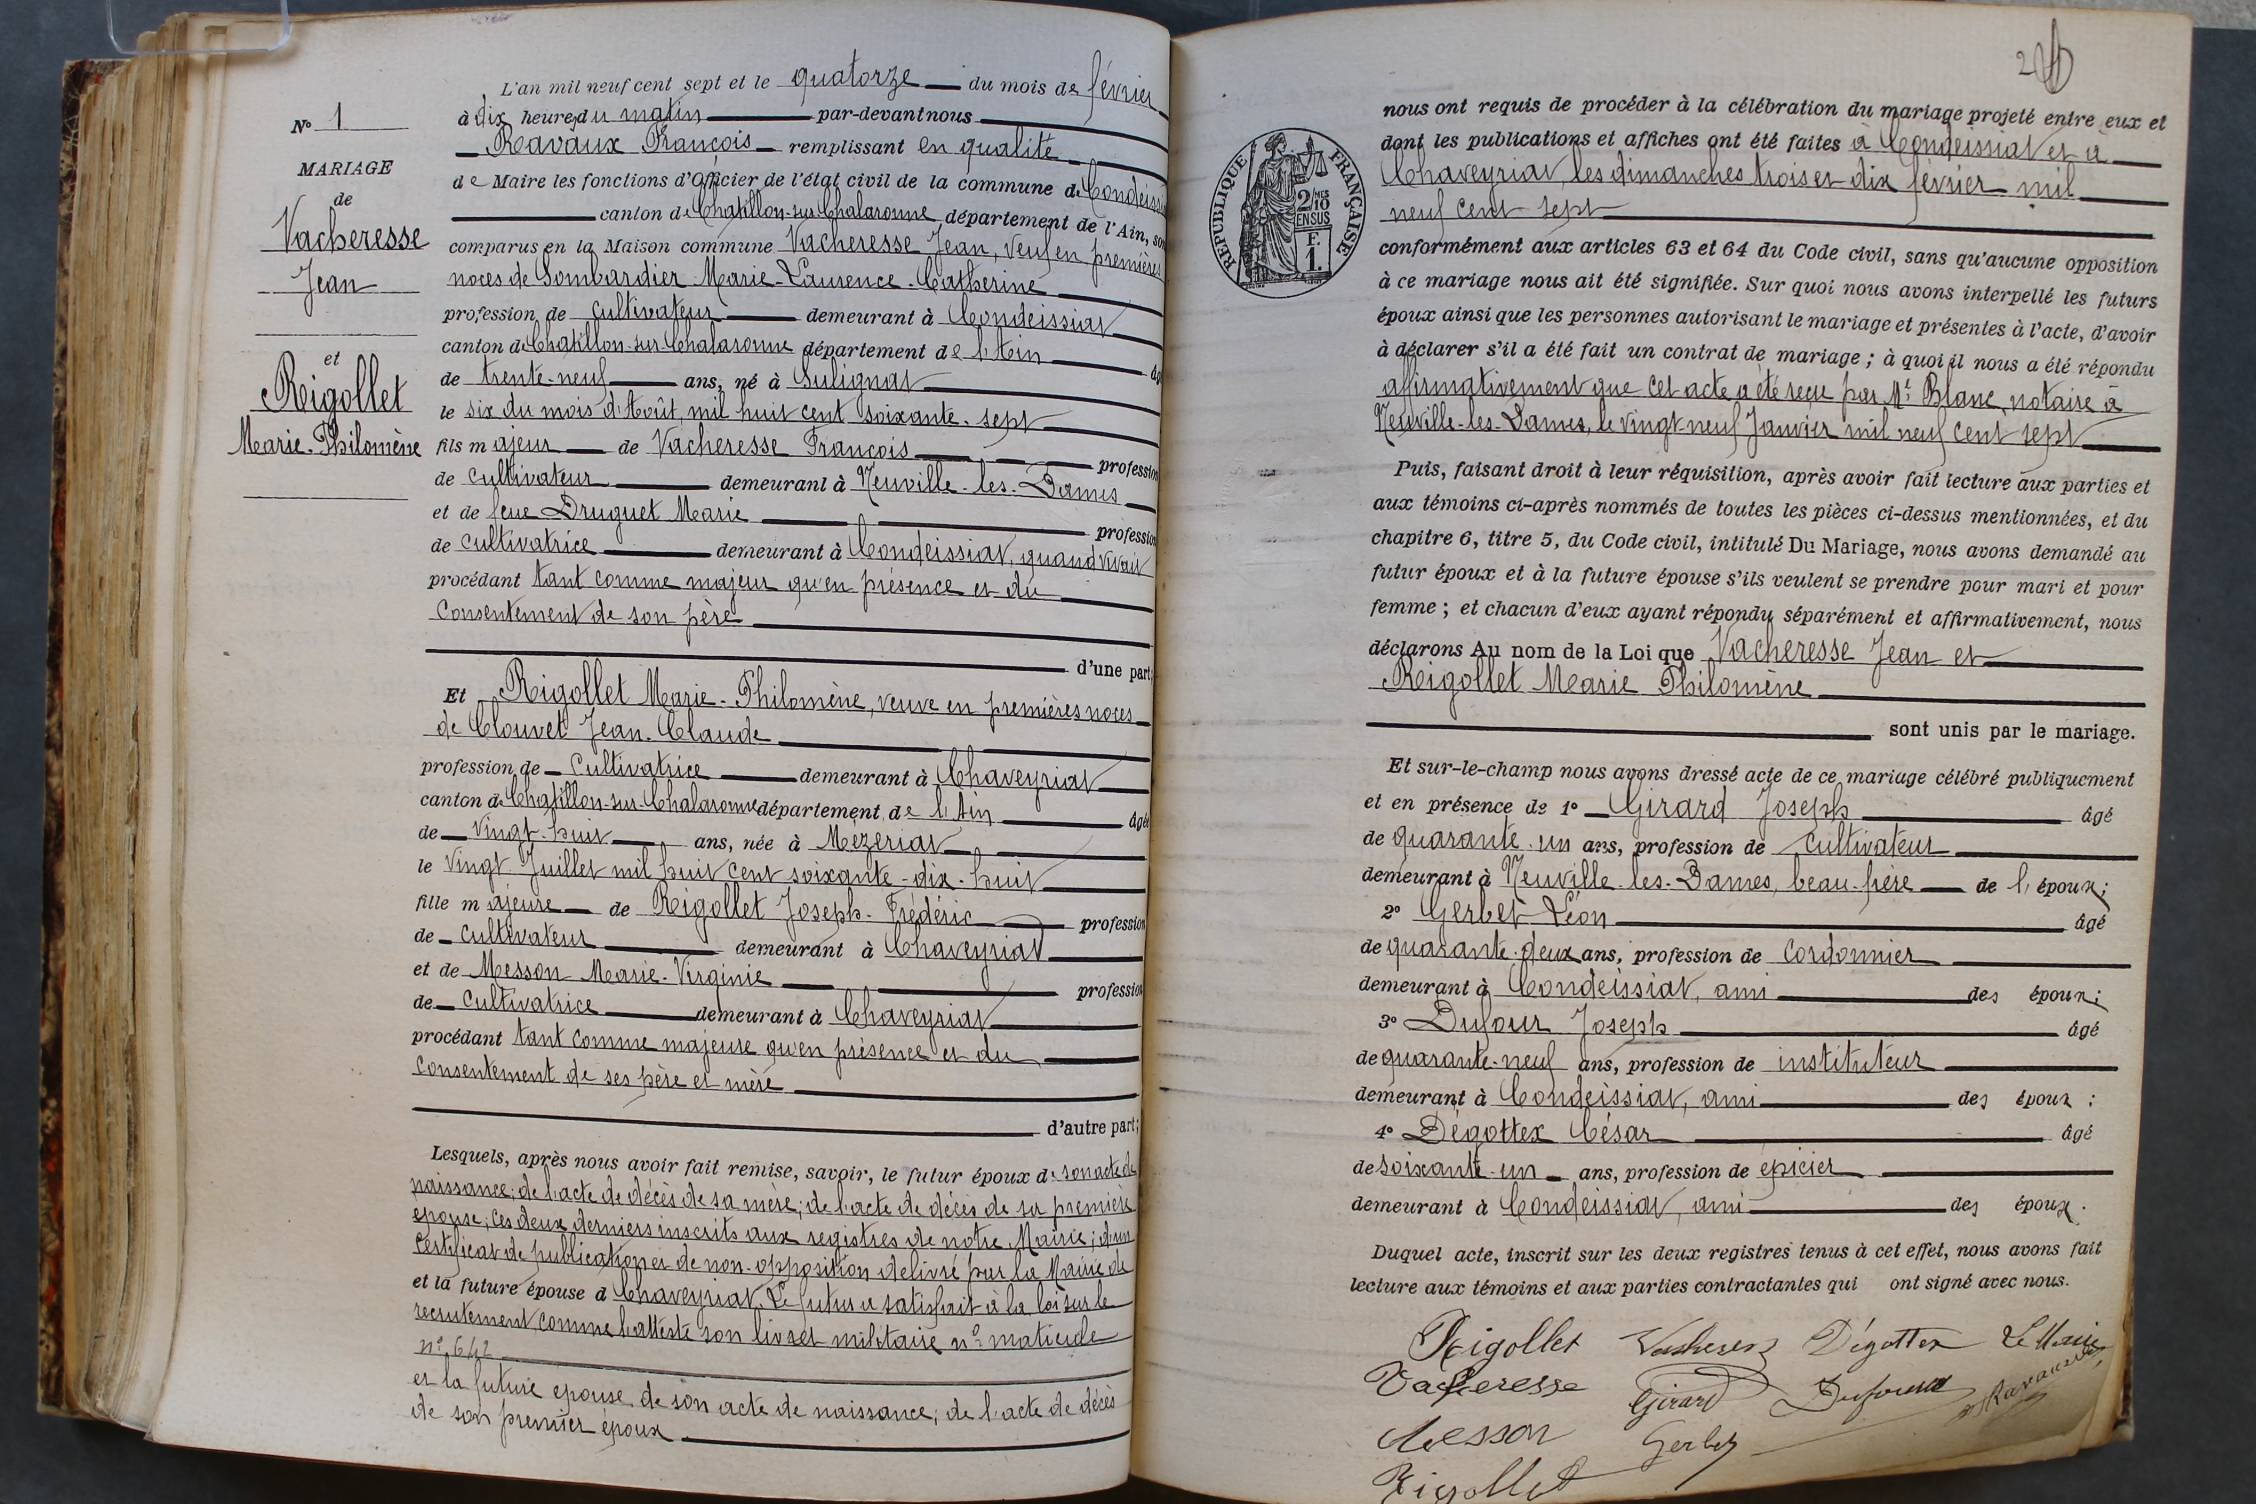 L'an mil neuf cent sept et le quatorze du mois de février
à dix heures du matin par-devant nous
Ravaux François remplissant en qualité
de Maire les fonctions d'officier de l'état civil de la commune de Condeissiat
canton de Châtillon-sur-Chalaronne département de l'Ain, sont
comparus en la Maison commune Vacheresse Jean, veuf en premières
noces de Sombardier Marie-Laurence-Catherine
profession de cultivateur demeurant à Condeissiat
canton de Châtillon-sur-Chalaronne département de l'Ain
âgé
de trente-neuf ans, né à Sulignat
le six du mois d'Août mil huit cent soixante-sept
fils majeur de Vacheresse François profession
de cultivateur demeurant à Neuville-les-Dames
et de feue Druguet Marie profession
de cultivatrice demeurant à Condeissiat, quand vivait
procédant tant comme majeur qu'en présence et du
consentement de son père
d'une part;
Et Rigollet Marie-Philomène, veuve en premières noces
de Clouvet Jean-Claude
profession de cultivatrice demeurant à Chaveyriat
canton de Châtillon-sur-Chalaronne département de l'Ain âgée
de vingt-huit ans, née à Mézériat
le vingt Juillet mil huit cent soixante-dix-huit
fille majeure de Rigollet Joseph-Frédéric profession
de cultivateur demeurant à Chaveyriat
et de Messon Marie-Virginie profession
de cultivatrice demeurant à Chaveyriat
procédant tant comme majeure qu'en présence et du
consentement de ses père et mère
d'autre part;
Lesquels, après nous avoir fait remise, savoir, le futur époux de son acte de
naissance; de l'acte de décès de sa mère; de l'acte de décès de sa première
épouse; ces deux derniers inscrits aux registres de notre Mairie; d'un
certificat de publication et de non-opposition délivré par la Mairie de
et la future épouse d Chaveyriat. Le futur a satisfait à la loi sur le
recrutement comme l'atteste son livret militaire nº matricule
nº 642
et la future épouse de son acte de naissance; de l'acte de décès
de son premier époux
Nº 1
MARIAGE
de
Vacheresse
Jean
et
Rigollet
Marie-Philomène
nous ont requis de procéder à la célébration du mariage projeté entre eux et
dont les publications et affiches ont été faites à Condeissiat et à
Chaveyriat, les dimanches trois et dix février mil
neuf cent sept
conformément aux articles 63 et 64 du Code civil, sans qu'aucune opposition
à ce mariage nous ait été signifiée. Sur quoi nous avons interpellé les futurs
époux ainsi que les personnes autorisant le mariage et présentes à l'acte, d'avoir
à déclarer s'il a été fait un contrat de mariage ; à quoi il nous a été répondu
affirmativement que cet acte a été reçu par Mt Blanc, notaire à
Neuville-les-Dames, le vingt-neuf Janvier mil neuf cent sept
Puis, faisant droit à leur réquisition, après avoir fait lecture aux parties et
aux témoins ci-après nommés de toutes les pièces ci-dessus mentionnées, et du
chapitre 6, titre 5, du Code civil, intitulé Du Mariage, nous avons demandé au
futur époux et à la future épouse s'ils veulent se prendre pour mari et pour
femme ; et chacun d'eux ayant répondu séparément et affirmativement, nous
déclarons Au nom de la Loi que Vacheresse Jean et
Rigollet Marie Philomène
sont unis par le mariage.
Et sur-le-champ nous avons dressé acte de ce mariage célébré publiquement
et en présence de 1º Girard Joseph âgé
de quarante-un ans, profession de cultivateur
demeurant à Neuville-les-Dames, beau-frère de l'époux;
2º Gerbet Léon âgé
de quarante-deux ans, profession de cordonnier
demeurant à Condeissiat, ami des époux;
3º Dufour Joseph âgé
de quarante-neuf ans, profession de instituteur
demeurant à Condeissiat, ami des époux ;
4º Dégottex César âgé
de soixante-un ans, profession de épicier
demeurant à Condeissiat, ami des époux.
Duquel acte, inscrit sur les deux registres tenus à cet effet, nous avons fait
lecture aux témoins et aux parties contractantes qui ont signé avec nous.
Rigollet Vacheresse Dégottex Le Maire
Vacheresse Girard Dufour Ravaux
Messon Gerbet
Rigollet
RÉPUBLIQUE FRANÇAISE
2/10
EN SUS
F.
1.